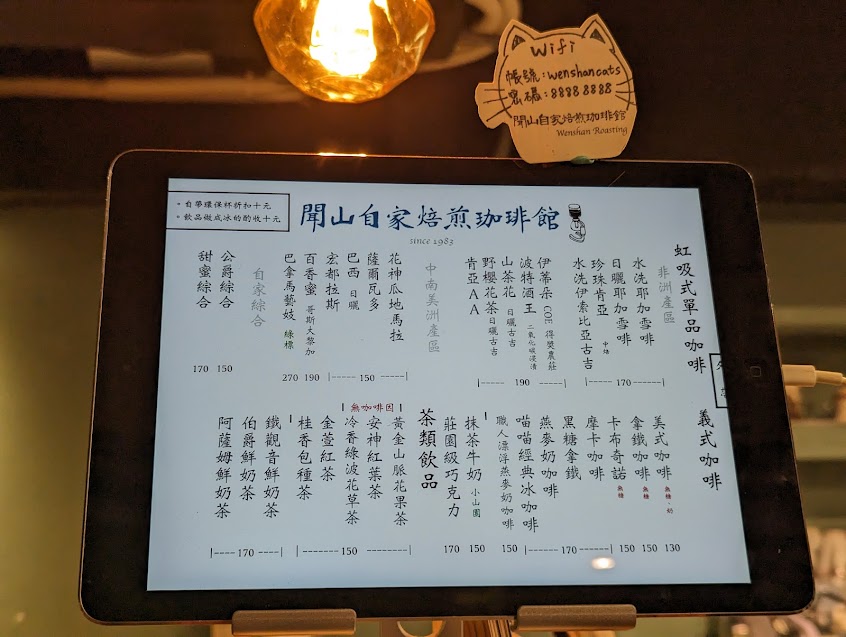 Wifi
帳號：wenshancats
密碼：8888 8888
聞山自家焙煎珈琲館
Wenshan Roasting
。自帶環保杯折扣十元
。飲品做成冰的酌收十元
聞山自家焙煎珈琲館
since 1983
虹吸式單品咖啡
非洲產區
水洗耶加雪啡
日曬耶加雪啡
珍珠肯亞 中焙
水洗伊索比亞古吉
170
伊蒂朵 COE 得獎農莊
波特酒王 二氧化碳浸漬
山茶花 日曬古吉
野櫻花茶 日曬古吉
肯亞AA
190
中南美洲產區
花神瓜地馬拉
薩爾瓦多
巴西 日曬
宏都拉斯
150
百香蜜 哥斯大黎加
190
巴拿馬藝妓 綠標
270
自家綜合
公爵綜合
150
甜蜜綜合
170
義式咖啡
美式咖啡 無糖、奶
130
拿鐵咖啡 無糖
150
卡布奇諾 無糖
150
摩卡咖啡
黑糖拿鐵
燕麥奶咖啡
喵喵經典冰咖啡
170
職人漂浮燕麥奶咖啡
150
抹茶牛奶 小山園
150
莊園級巧克力
170
茶類飲品
無咖啡因
黃金山脈花果茶
安神紅葉茶
冷香綠波花草茶
金萱紅茶
桂香包種茶
150
鐵觀音鮮奶茶
伯爵鮮奶茶
阿薩姆鮮奶茶
170